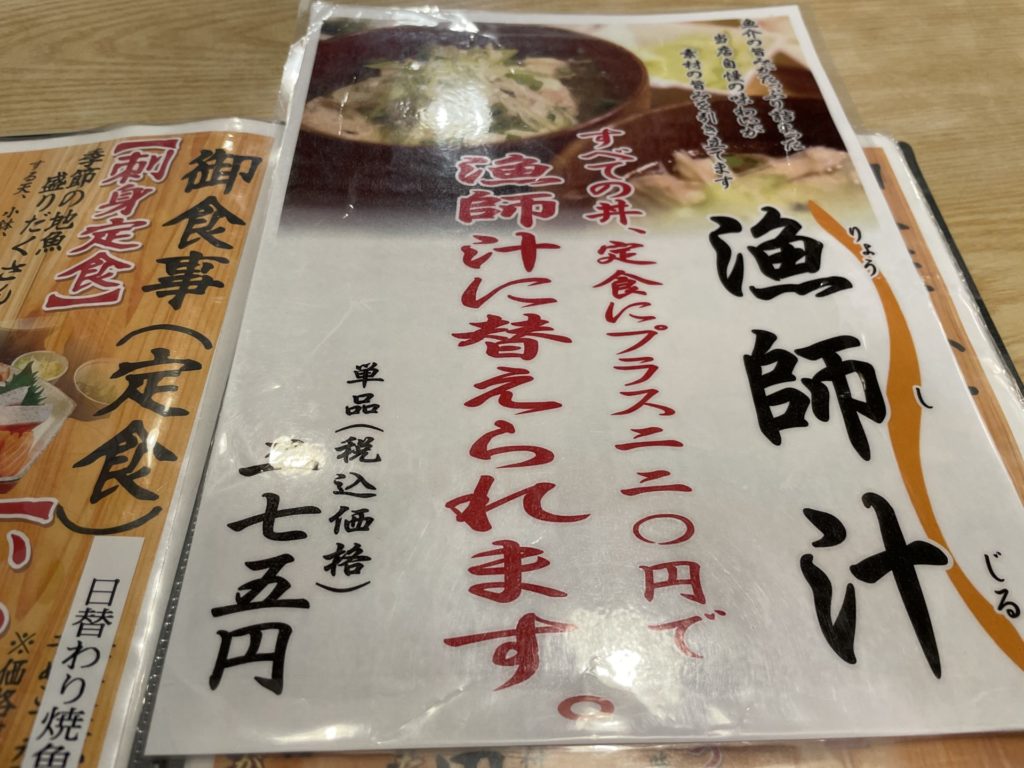 漁師汁
りょう
し
じる
魚介の旨みがたっぷり詰まった
当店自慢の味わいが
素材の旨みを引き立てます
すべての丼、定食にプラス二二〇円で
漁師汁に替えられます。
単品(税込価格)
三七五円
御食事(定食)
【刺身定食】
季節の地魚
盛りだくさん
日替わり焼魚